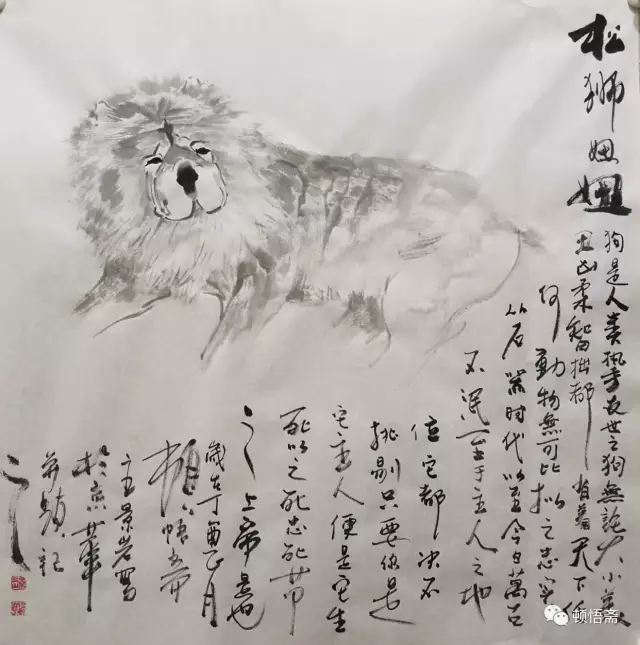 松狮妞妞
狗是人类挚友世之狗無論大小美
丑凶柔智拙都有着天下任
何動物無可比拟之忠实
从石器时代以至今日萬古
不泯至于主人之地
位它都决不
挑剔只要你是
它主人便是它生
死以之死忠死节
之上帝是也
歲在丁酉乙月
顿悟斋
主景岩写
於京華
并題記
顿悟斋